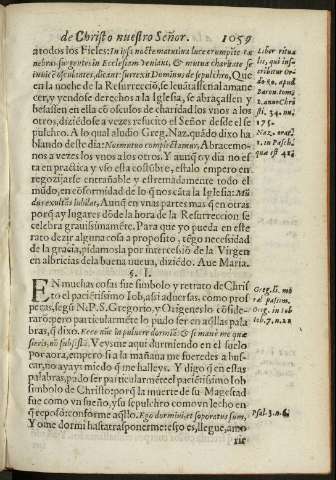 de Christo nuestro Señor. 1059
a todos los Fieles: In ipsa nocte matutina luce erumpite
nebras surgentes in Ecclesiam veniant, & mutua charitate se
invicē osculantes, dicant: surrexit Dominus de sepulchro, Que
en la noche de la Resurrecciō, se levātassen al amane
cer, y yendose derechos a la Iglesia, se abraçassen y
besassen en ella cō osculos de charidad los vnos a los
otros, diziēdose a vezes resucito el Señor desde el se
pulchro. A lo qual aludio Greg. Naz. quādo dixo ha
blando deste dia: Nosmutuo complectamur, Abracemo
nos a vezes los vnos a los otros. Y aunq̄ oy dia no es
ta en practica y vso esta costūbre, estalo empero en
regozijarse entrañable y estremadamente todo el
mūdo, en cōformidad de lo q̄ nos cāta la Iglesia: Mū
dus exultās iubilat, Aunq̄ en vnas partes mas q̄ en otras
porq̄ ay lugares dōde la hora de la Resurreccion se
celebra gravissimamēte. Para que yo pueda en este
rato dezir alguna cosa a proposito, tēgo necessidad
de la gracia, pidamosla por intercessiō de la Virgen
en albricias dela buena nueua, diziēdo. Aue Maria.
§. I.
EN muchas cosas fue simbolo y retrato de Chris
to el paciētissimo Iob, assi aduersas. como pros
peras, segū N. P. S. Gregorio, y Origenes lo cōside-
raron: pero particularmēte lo pudo ser en aq̄llas pala
bras, q̄ dixo. Ecce nūc in puluere dormiā: & si mane me quę
sieris, nō subsistā. Veysme aqui durmiendo en el suelo
por aora, empero si a la mañana me fueredes a bus-
car, no ayays miedo q̄ me halleys. Y digo q̄ en estas
palabras, pudo ser particularmēte el paciētissimo Iob
simbolo de Christo: porq̄ la muerte de su Magestad
fue como vn sueño, y su sepulchro como vn lecho en
q̄ reposò: conforme aq̄llo. Ego dormiui, et soporatus sum,
Y o me dormi hasta trasponerme: esto es, lleguè, amo
rir
Liber ritua
lis, qui inscri
bitur Or-
do Ro. apud
Baron. tom.
1. anno Chri
sti. 34. nu.
175.
Naz. orat.
2. in Pasch.
quæ est 42.
Greg. li. mo
ral passim.
Orig. in Iob
Iob. 7. n. 21
Psal. 3. n. 6.